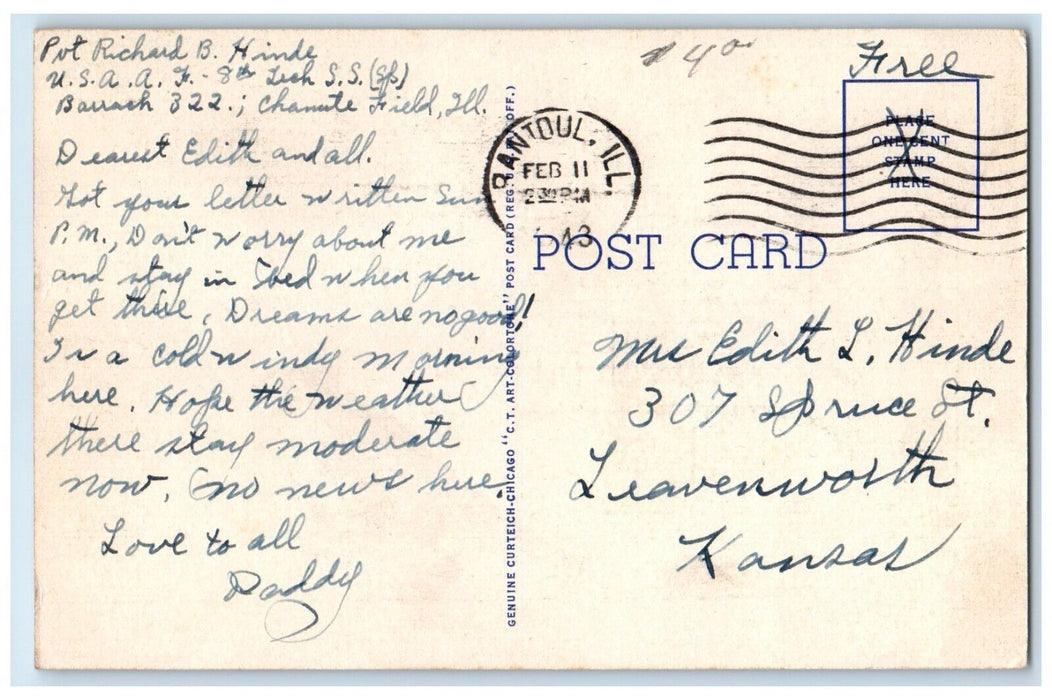 Pvt Richard B. Hinde
U.S.A.A.F. - 8th Tech S.S. (Sp)
Barrack 322.; Chanute Field, Ill.
Dearest Edith and all.
Got your letter written Sun
P.M., Don't worry about me
and stay in bed when you
get there. Dreams are no good!
Is a cold windy morning
here. Hope the weather
there stay moderate
now. No news here.
Love to all
Daddy
GENUINE CURTEICH-CHICAGO "C.T. ART-COLORTONE" POST CARD (REG. U.S. PAT. OFF.)
RANTOUL, ILL.
FEB 11
2 30 PM
43
$4.00
Free
PLACE
ONE CENT
STAMP
HERE
POST CARD
Mrs Edith L. Hinde
307 Spruce St.
Leavenworth
Kansas